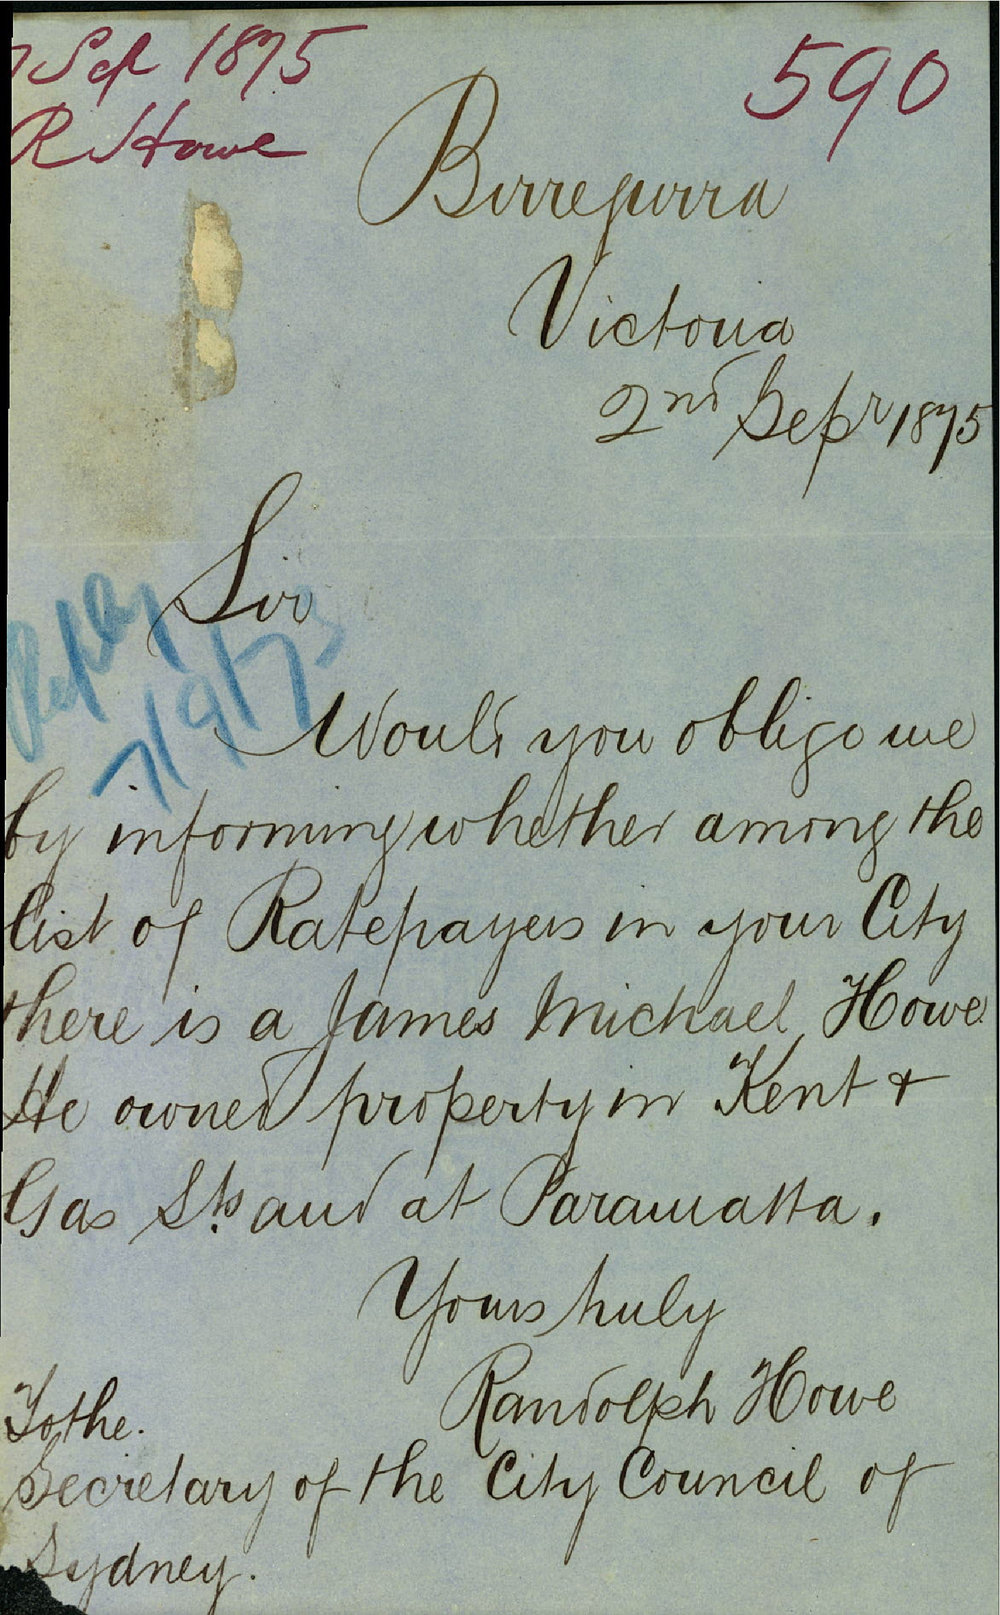 7 Sep 1875
R Howe
590
Birregurra
Victoria
2nd Sepr 1875
Sir
Reply
7/9/75
Would you oblige me
by informing whether among the
list of Ratepayers in your City
there is a James Michael Howe
He owned property in Kent &
Gas Sts and at Paramatta.
Yours truly
Randolph Howe
To the.
Secretary of the City Council of
Sydney.